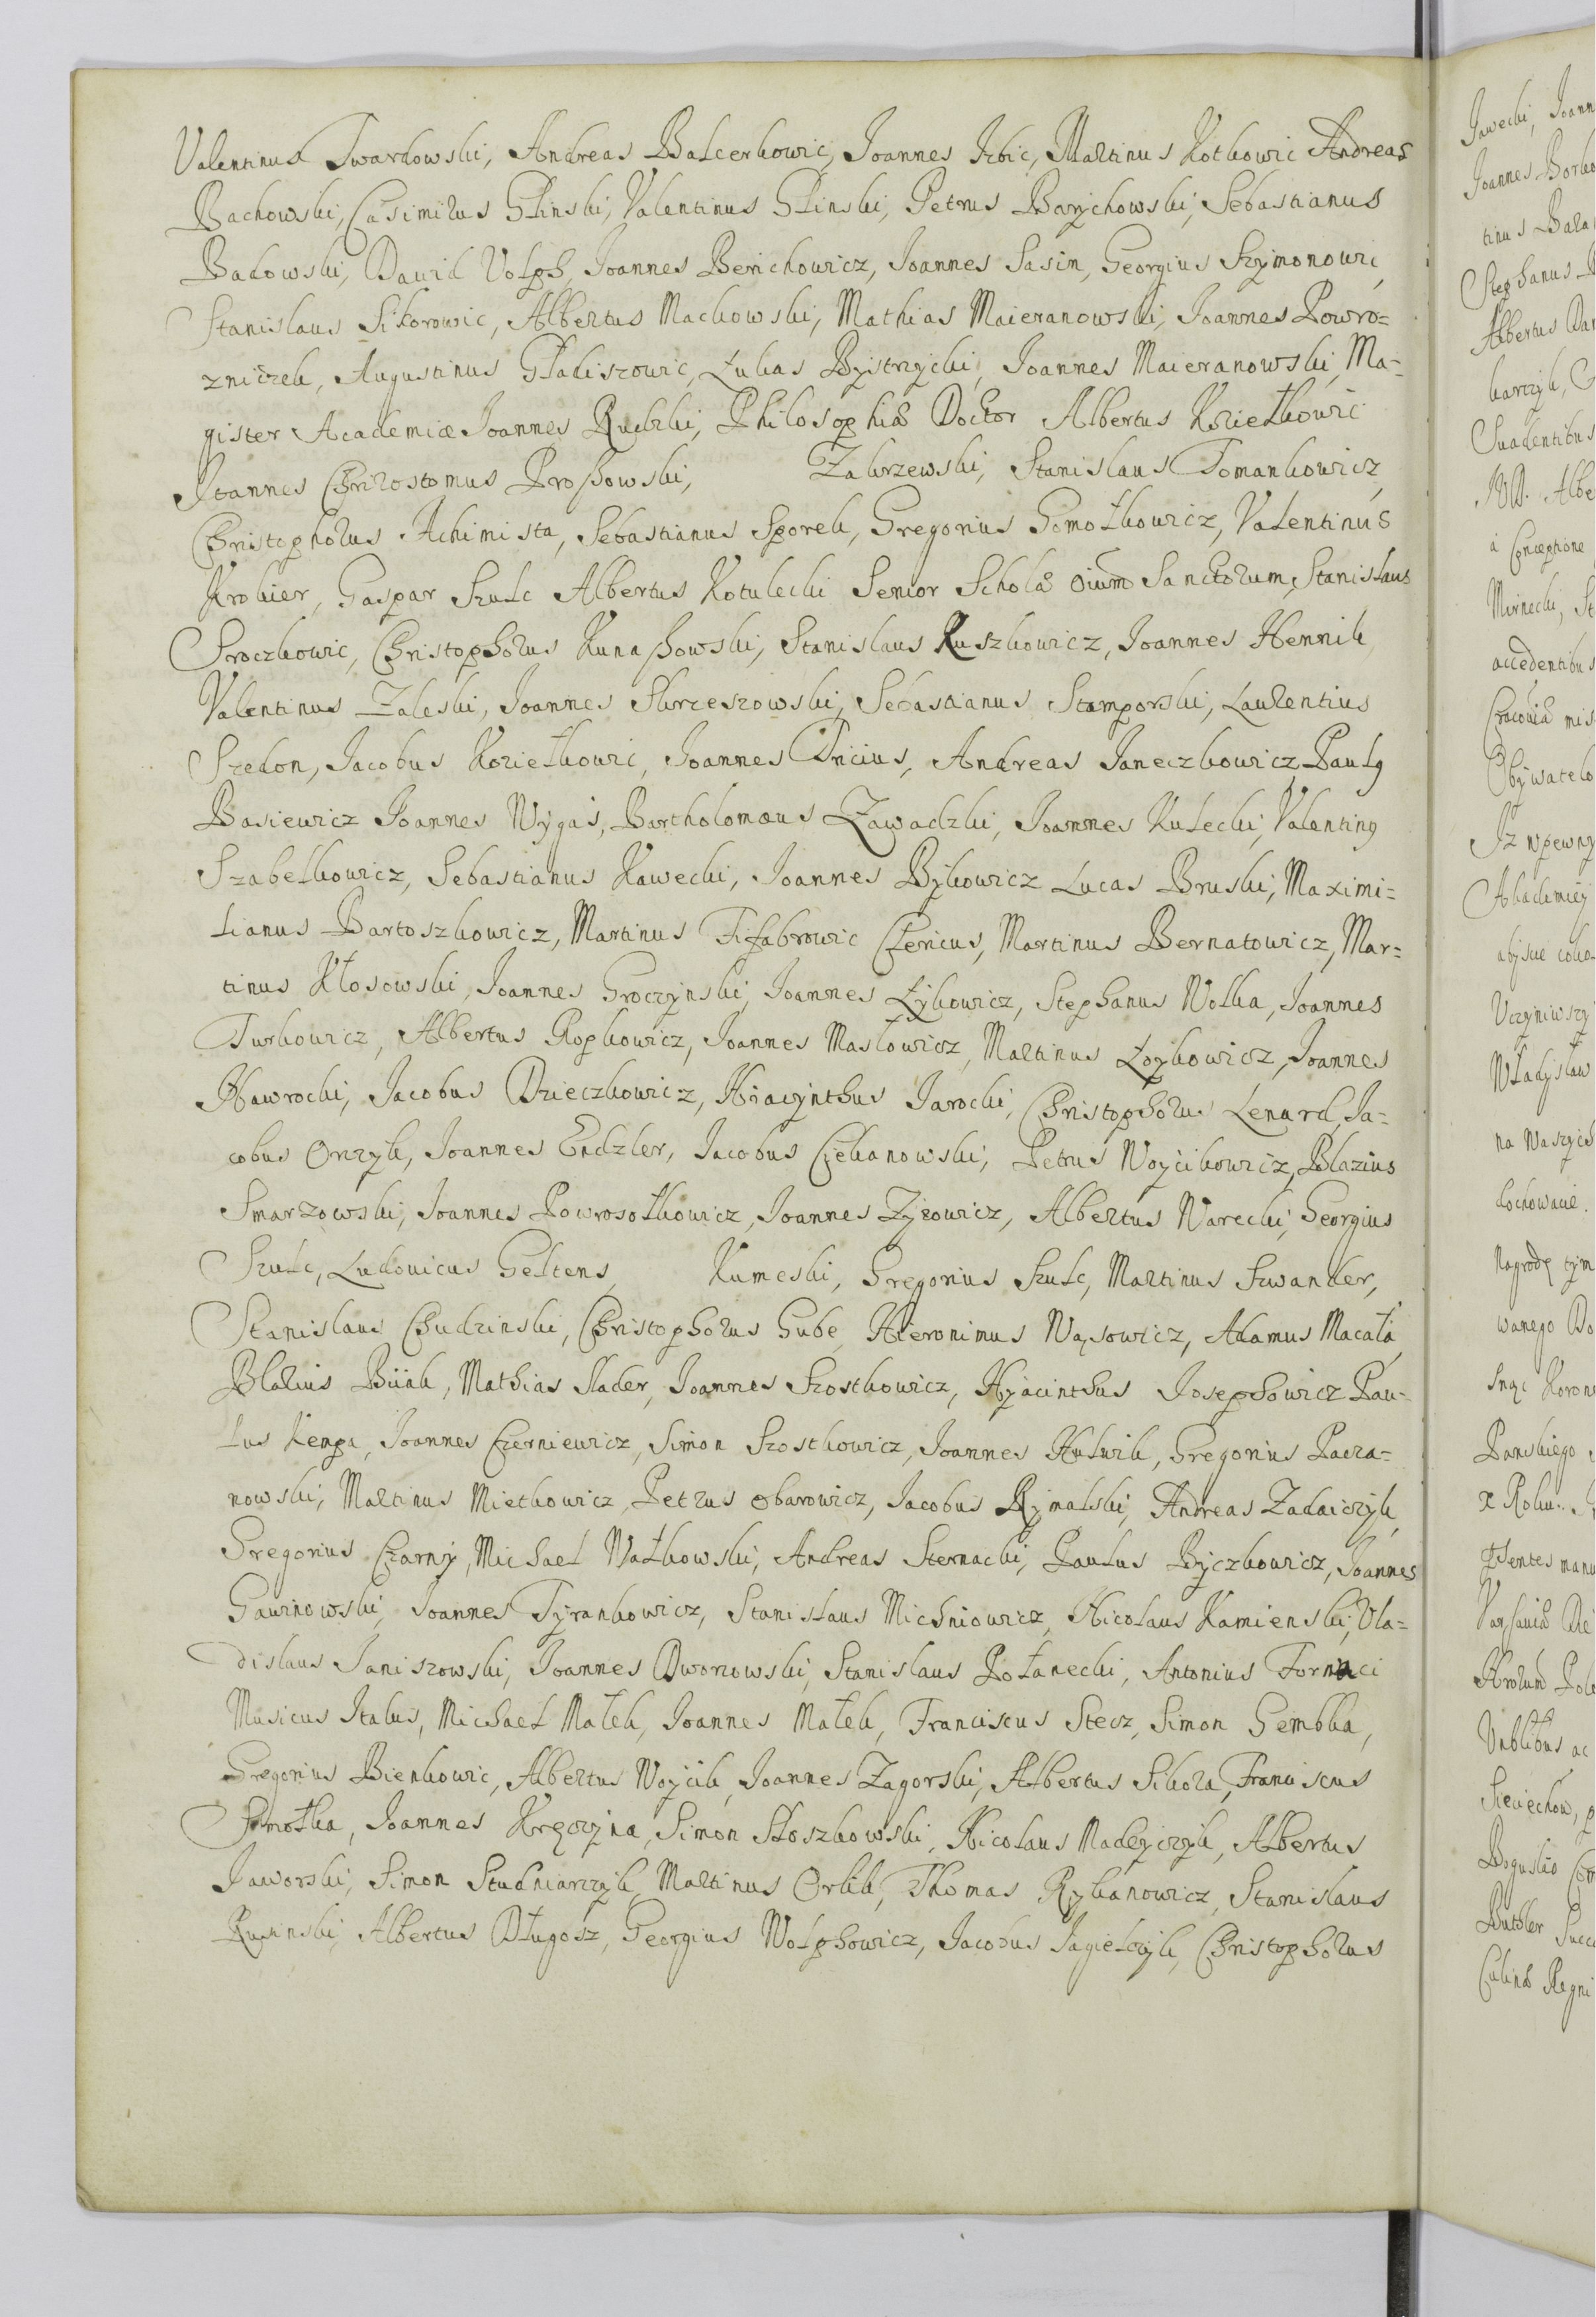 Valentinus Twardowski, Andreas Balcerkowic, Joannes Izbic, Martinus Kotkowic Andreas
Bachowski, Casimirus Glinski, Valentinus Glinski, Petrus Barychowski, Sebastianus
Badowski, David Volph, Joannes Berichowicz, Joannes Sasin, Georgius Szymonowic,
Stanislaus Sikorowic, Albertus Machowski, Mathias Maieranowski, Joannes Powro=
zniczek, Augustinus Gładiszowic, Łukas Bystrzycki, Joannes Maieranowski, Ma=
gister Academiæ Joannes Rudzki, Philosophiæ Doctor Albertus Koziełkowic
Joannes Chrizostomus Proßowski, Zakrzewski, Stanislaus Tomankowicz,
Christophorus Achimista, Sebastianus Sporek, Gregorius Gomołkowicz, Valentinus
Krokier, Gaspar Szulc Albertus Kotulecki Senior Scholæ oium Sanctorum, Stanislaus
Sroczkowic, Christophorus Kunaßowski, Stanislaus Ruszkowicz, Joannes Hennik,
Valentinus Zaleski, Joannes Skrzeszowski, Sebastianus Stamporski, Laurentius
Szelon, Jacobus Koziełkowic, Joannes Incius, Andreas Janeczkowicz, Paul9
Basiewicz Joannes Wygas, Bartholomæus Zawadzki, Joannes Kulecki, Valentin9
Szabelkowicz, Sebastianus Kawecki, Joannes Bykowicz Lucas Bruski, Maximi=
lianus Bartoszkowicz, Martinus Fifabrowic Clericus, Martinus Bernatowicz, Mar=
tinus Kłosowski, Joannes Groczynski, Joannes Łykowicz, Stephanus Wolka, Joannes
Turkowicz, Albertus Ropkowicz, Joannes Masłowicz, Martinus Łoykowicz, Joannes
Nawrocki, Jacobus Dzieczkowicz, Hiacynthus Jarocki, Christophorus Lenard, Ja=
cobus Orczyk, Joannes Endzler, Jacobus Ciekanowski, Petrus Woycikowicz, Blazius
Smarzowski, Joannes Powrosołkowicz, Joannes Zyzowicz, Albertus Warecki, Georgius
Szulc, Ludovicus Geltens, Kumeski, Gregorius Szulc, Martinus Szwander,
Stanislaus Chudzinski, Christophorus Gube, Hieronimus Wąsowicz, Adamus Macała,
Blasius Biiak, Mathias Slader, Joannes Szostkowicz, Hyacinthus Josephowicz Pau=
lus Kempa, Joannes Czerniewicz, Simon Szostkowicz, Joannes Hulwik, Gregorius Pacza=
nowski, Martinus Mietkowicz, Petrus Obarowicz, Jacobus Rymalski, Andreas Zadaiczyk,
Gregorius Czarny, Michael Wałkowski, Andreas Sternacki, Paulus Byczkowicz, Joannes
Gawinowski, Joannes Tyrankowicz, Stanislaus Michniowicz, Nicolaus Kamienski, Vla=
dislaus Janiszowski, Joannes Dworzowski, Stanislaus Polanecki, Antonius Fornaci
Musicus Italus, Michael Małek, Joannes Małek, Franciscus Stecz, Simon Gembka,
Gregorius Bienkowic, Albertus Woycik, Joannes Zagorski, Albertus Sikora, Franciscus
Smołka, Joannes Kręczyna, Simon Słoszkowski, Nicolaus Madeyczyk, Albertus
Jaworski, Simon Studniarczyk, Martinus Orlik, Thomas Rybanowicz, Stanislaus
Rusinski, Albertus Długosz, Georgius Wolphowicz, Jacobus Jagielczyk, Christophorus
Jawecki, Joann
Joannes Borko
tinus Bara
Stephanus
Albertus Dan
karczyk,
Suadentibus
Albe
a Conceptione
Mirnecki, St
accedentibus
Cracoviæ mis
Obywatelo
Iz wpewny
Akademiey
abysie
Uczyniwszy
Władysław
na Naszych
dochowanie.
Nagrodę tym
wanego Do
Koron
Panskiego
manu
Varsaviæ Die
Pol
ac
Sieciechow, p
Boguslao Com
Buthler Succ
Culinæ Regni